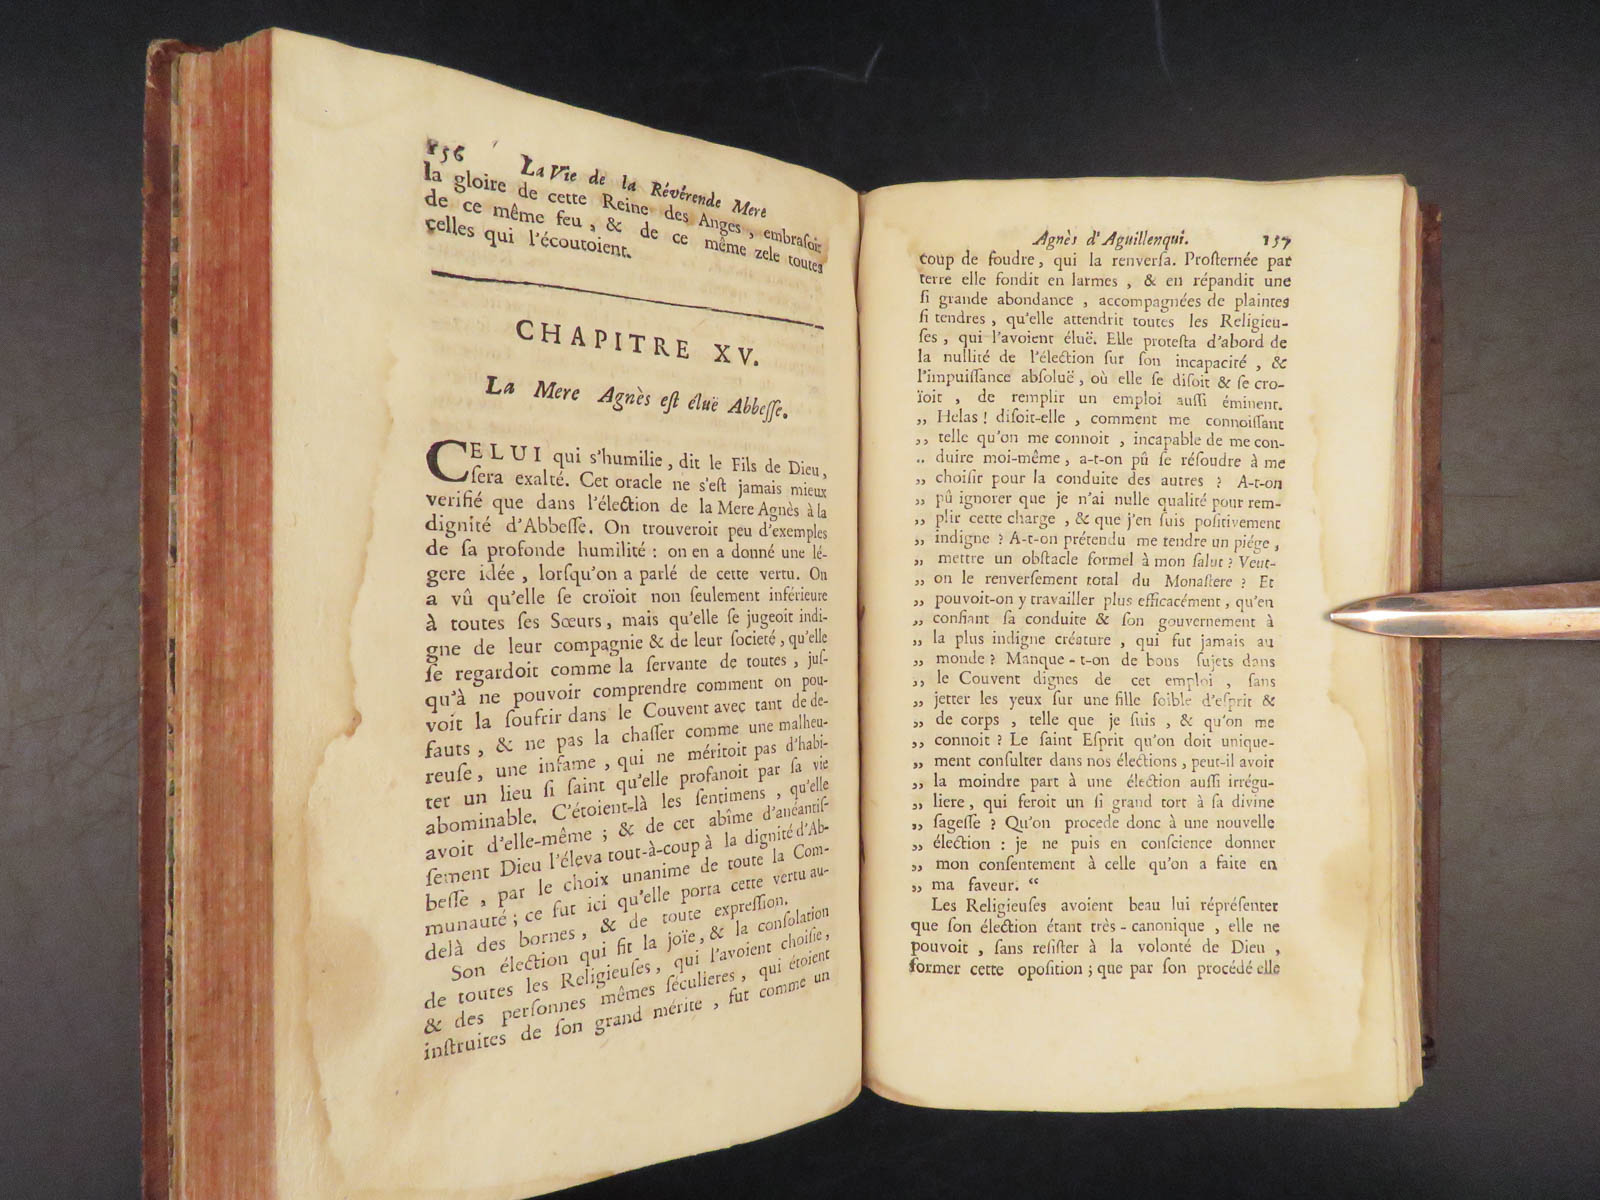 156 La Vie de la Révérende Mere
la gloire de cette Reine des Anges, embraſoit
de ce même feu, & de ce même zele toutes
celles qui l'écoutoient.
CHAPITRE XV.
La Mere Agnès eſt éluë Abbeſſe.
CELUI qui s'humilie, dit le Fils de Dieu,
ſera exalté. Cet oracle ne s'eſt jamais mieux
verifié que dans l'élection de la Mere Agnès à la
dignité d'Abbeſſe. On trouveroit peu d'exemples
de ſa profonde humilité : on en a donné une lé-
gere idée, lorſqu'on a parlé de cette vertu. On
a vû qu'elle ſe croïoit non ſeulement inférieure
à toutes ſes Sœurs, mais qu'elle ſe jugeoit indi-
gne de leur compagnie & de leur ſocieté, qu'elle
ſe regardoit comme la ſervante de toutes, juſ-
qu'à ne pouvoir comprendre comment on pou-
voit la ſouffrir dans le Couvent avec tant de de-
fauts, & ne pas la chaſſer comme une malheu-
reuſe, une infame, qui ne méritoit pas d'habi-
ter un lieu ſi ſaint qu'elle profanoit par ſa vie
abominable. C'étoient-là les ſentimens, qu'elle
avoit d'elle-même ; & de cet abîme d'anéantiſ-
ſement Dieu l'éleva tout-à-coup à la dignité d'Ab-
beſſe, par le choix unanime de toute la Com-
munauté ; ce fut ici qu'elle porta cette vertu au-
delà des bornes, & de toute expreſſion.
Son élection qui fit la joïe, & la conſolation
de toutes les Religieuſes, qui l'avoient choiſie,
& des perſonnes mêmes ſéculieres, qui étoient
inſtruites de ſon grand mérite, fut comme un
Agnès d'Aguillenqui. 157
coup de foudre, qui la renverſa. Proſternée par
terre elle fondit en larmes, & en répandit une
ſi grande abondance, accompagnées de plaintes
ſi tendres, qu'elle attendrit toutes les Religieu-
ſes, qui l'avoient éluë. Elle proteſta d'abord de
la nullité de l'élection ſur ſon incapacité, &
l'impuiſſance abſoluë, où elle ſe diſoit & ſe cro-
ïoit, de remplir un emploi auſſi éminent.
„ Helas ! diſoit-elle, comment me connoiſſant
„ telle qu'on me connoit, incapable de me con-
„ duire moi-même, a-t-on pû ſe réſoudre à me
„ choiſir pour la conduite des autres ? A-t-on
„ pû ignorer que je n'ai nulle qualité pour rem-
„ plir cette charge, & que j'en ſuis poſitivement
„ indigne ? A-t-on prétendu me tendre un piége,
„ mettre un obſtacle formel à mon ſalut ? Veut-
„ on le renverſement total du Monaſtere ? Et
„ pouvoit-on y travailler plus efficacément, qu'en
„ confiant ſa conduite & ſon gouvernement à
„ la plus indigne créature, qui fut jamais au
„ monde ? Manque-t-on de bons ſujets dans
„ le Couvent dignes de cet emploi, ſans
„ jetter les yeux ſur une fille foible d'eſprit &
„ de corps, telle que je ſuis, & qu'on me
„ connoit ? Le ſaint Eſprit qu'on doit unique-
„ ment conſulter dans nos élections, peut-il avoir
„ la moindre part à une élection auſſi irrégu-
„ liere, qui feroit un ſi grand tort à ſa divine
„ ſageſſe ? Qu'on procede donc à une nouvelle
„ élection : je ne puis en conſcience donner
„ mon conſentement à celle qu'on a faite en
„ ma faveur. “
Les Religieuſes avoient beau lui répréſenter
que ſon élection étant très-canonique, elle ne
pouvoit, ſans reſiſter à la volonté de Dieu,
former cette opoſition ; que par ſon procédé elle